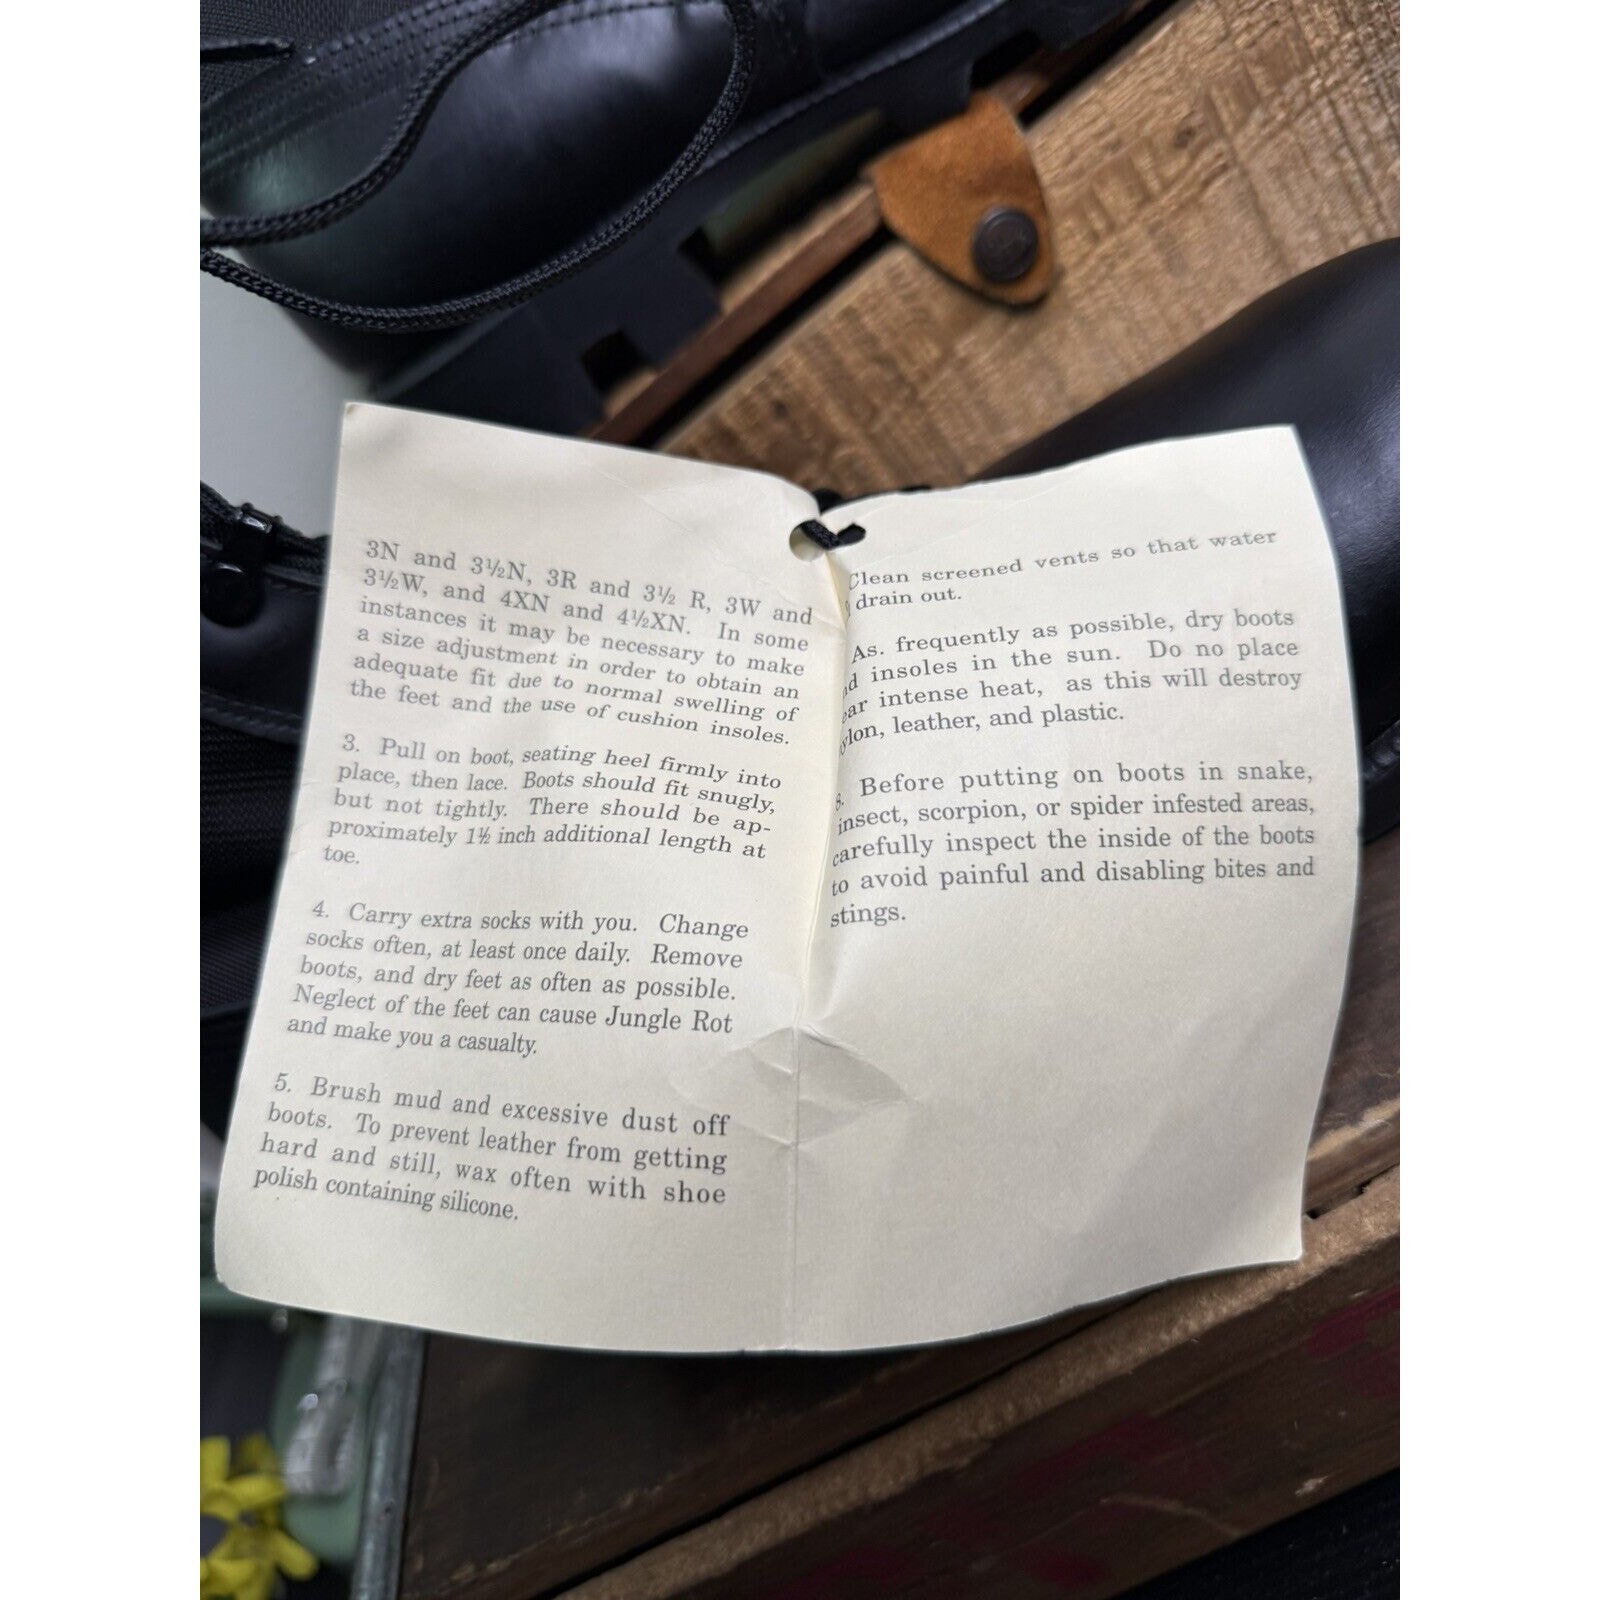 3N and 3½N, 3R and 3½ R, 3W and
3½W, and 4XN and 4½XN. In some
instances it may be necessary to make
a size adjustment in order to obtain an
adequate fit due to normal swelling of
the feet and the use of cushion insoles.
3. Pull on boot, seating heel firmly into
place, then lace. Boots should fit snugly,
but not tightly. There should be ap-
proximately 1½ inch additional length at
toe.
4. Carry extra socks with you. Change
socks often, at least once daily. Remove
boots, and dry feet as often as possible.
Neglect of the feet can cause Jungle Rot
and make you a casualty.
5. Brush mud and excessive dust off
boots. To prevent leather from getting
hard and still, wax often with shoe
polish containing silicone.
Clean screened vents so that water
drain out.
As. frequently as possible, dry boots
insoles in the sun. Do no place
intense heat, as this will destroy
leather, and plastic.
8. Before putting on boots in snake,
insect, scorpion, or spider infested areas,
carefully inspect the inside of the boots
to avoid painful and disabling bites and
stings.